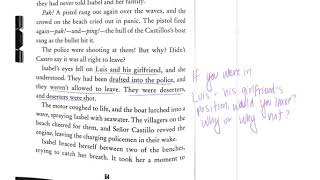 they had never told Isabel and her family.
Pak! A pistol rang out again over the waves, and the
crowd on the beach cried out in panic. The pistol fired
again—pak!—and—ping!—the hull of the Castillos's boat
sang as the bullet hit it.
The police were shooting at them! But why? Didn't
Castro say it was all right to leave?
Isabel's eyes fell on Luis and his girlfriend, and she
understood. They had been drafted into the police, and
they weren't allowed to leave. They were deserters,
and deserters were shot.
The motor coughed to life, and the boat lurched into a
wave, spraying Isabel with seawater. The villagers on the
beach cheered for them, and Señor Castillo revved the
engine, leaving the charging policemen in their wake.
Isabel braced herself between two of the benches,
trying to catch her breath. It took her a moment to
If you were in
Luis' + his girlfriend's
position, would you leave?
Why or why not?